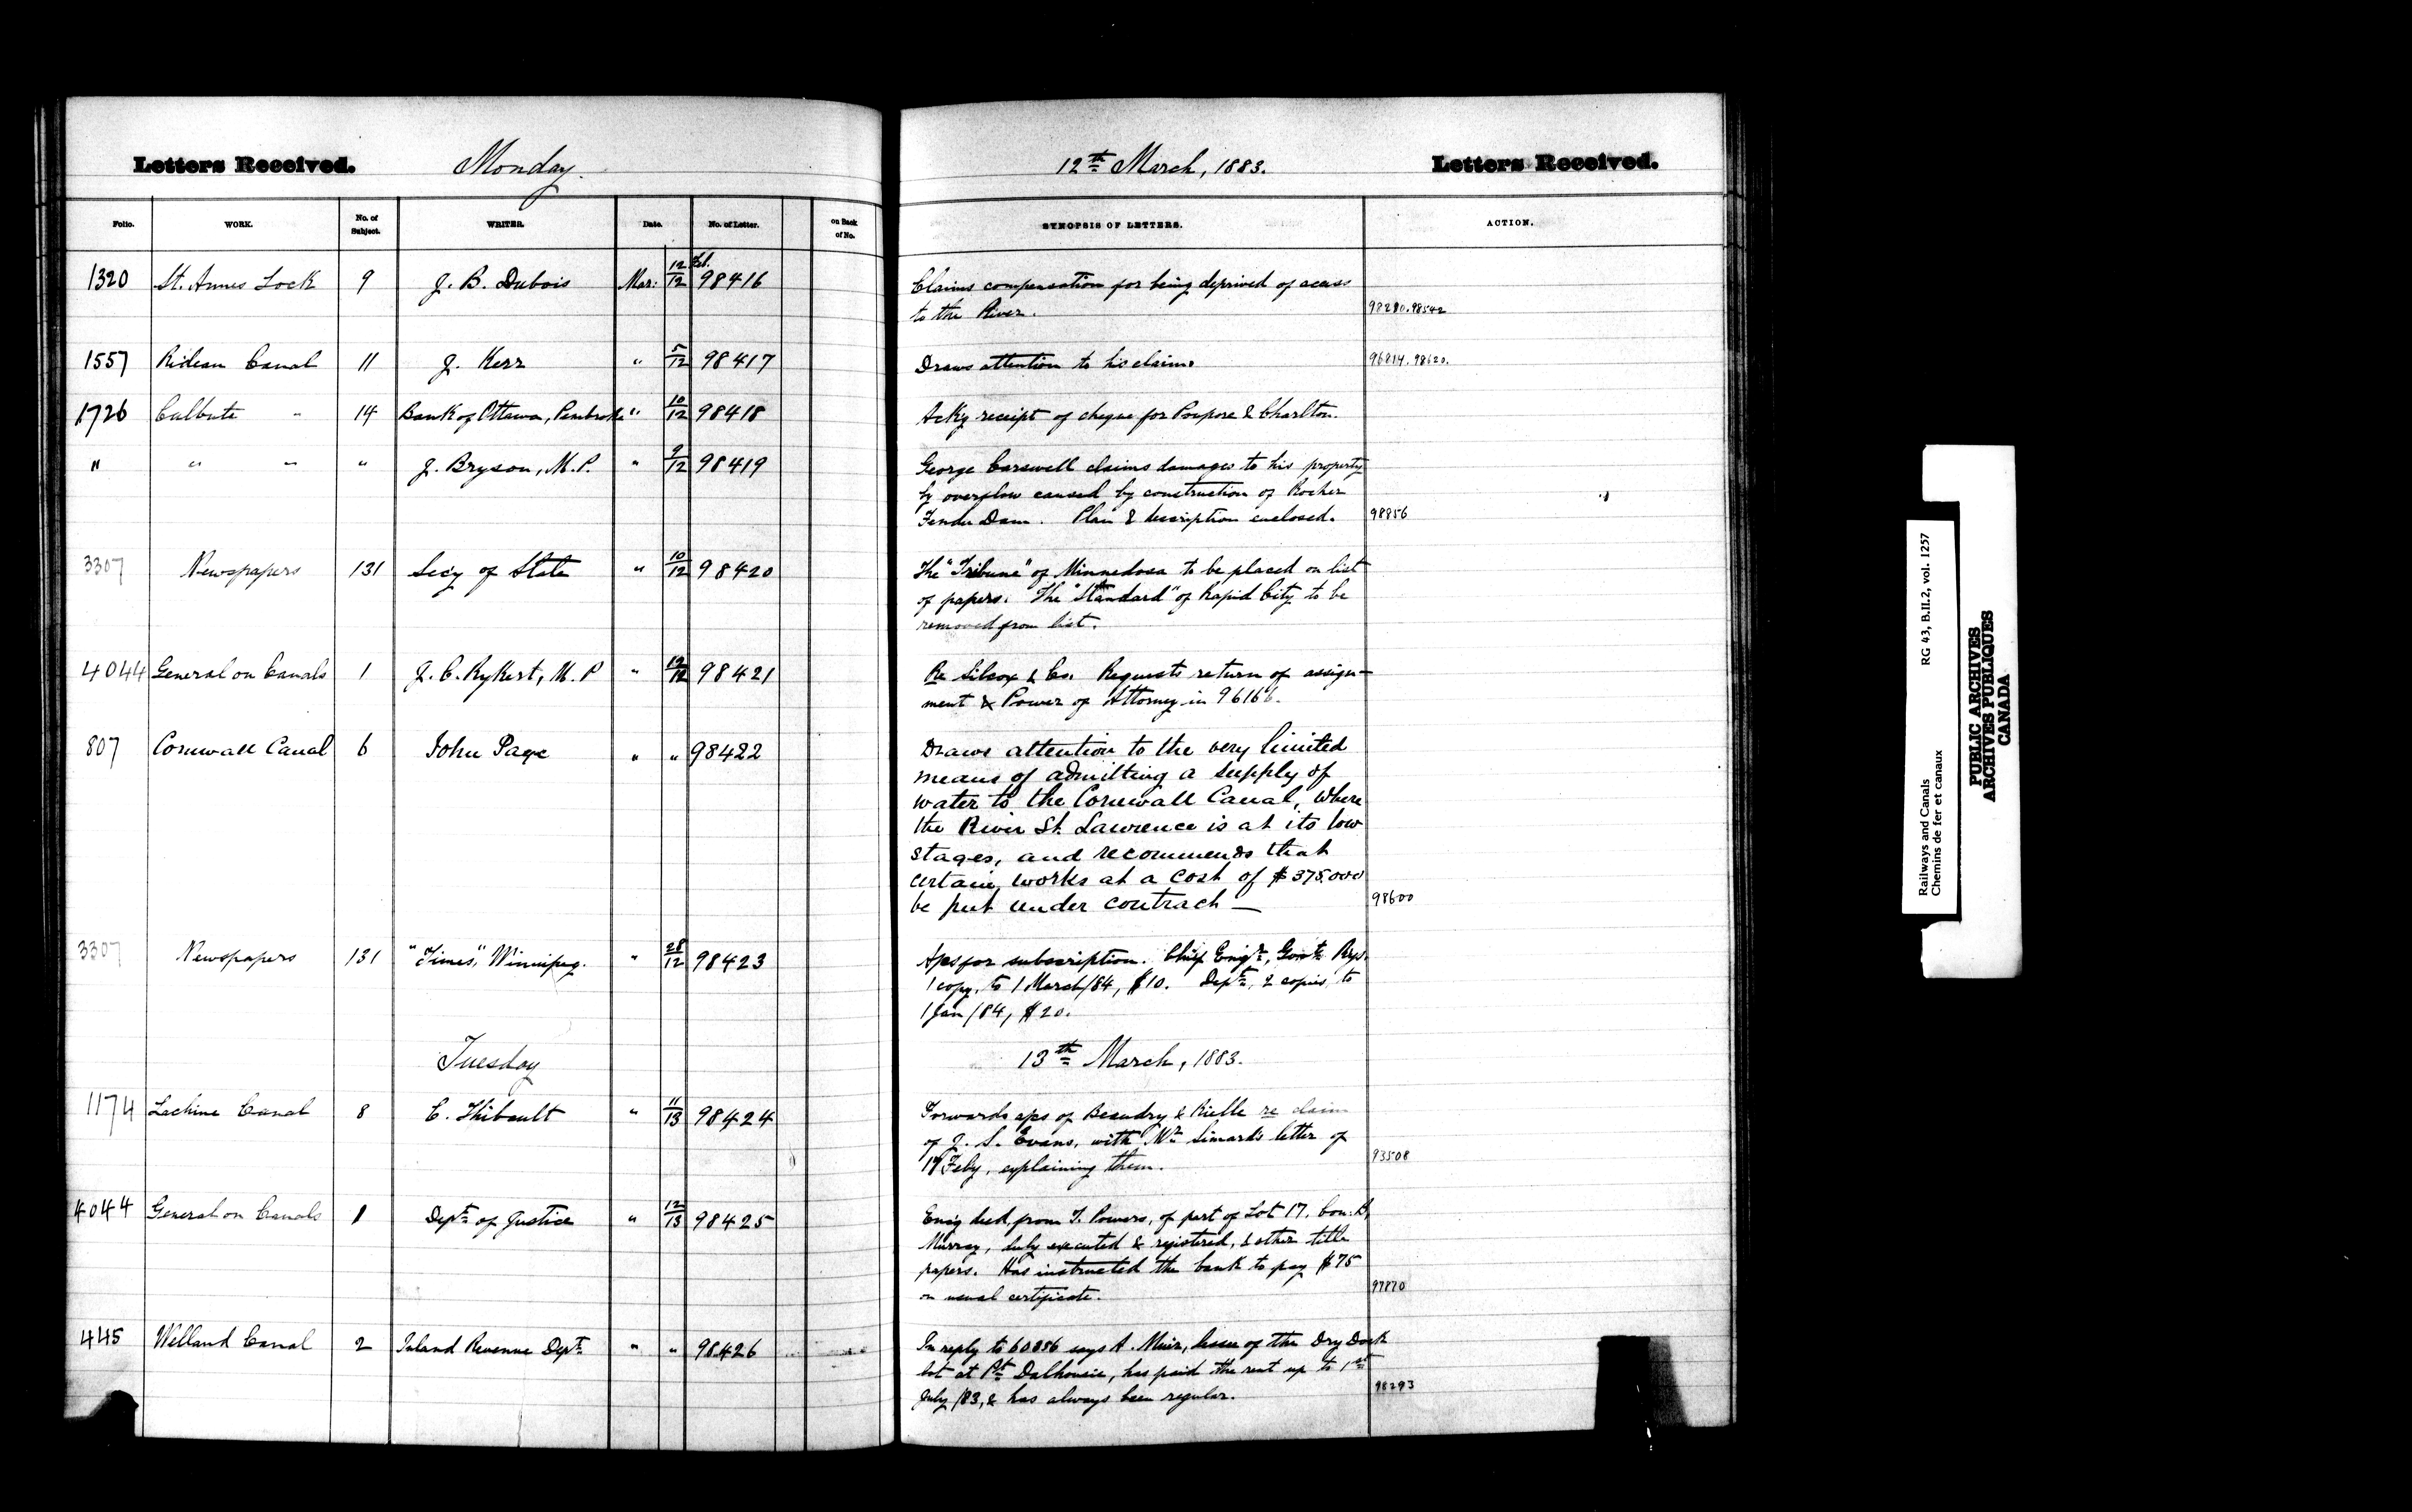 Letters Received. Monday. 12th March, 1883. Letters Received.
Folio. WORK. No. of Subject. WRITER. Date. No. of Letter. on Back of No. SYNOPSIS OF LETTERS. ACTION.
1320 St. Annes Lock 9 J. B. Dubois Mar: 12/12 Feb. 98416 Claims compensation for being deprived of access
to the River. 98280.98542
1557 Rideau Canal 11 J. Kerr " 5/12 98417 Draws attention to his claim. 96814.98620.
1726 Culbute " 14 Bank of Ottawa, Pembroke " 10/12 98418 Ackg receipt of cheque for Poupore & Charlton.
" " " " J. Bryson, M.P. " 9/12 98419 George Carswell claims damages to his property
by overflow caused by construction of Rocher
Fendu Dam. Plan & description enclosed. 98856
3307 Newspapers 131 Secy of State " 10/12 98420 The "Tribune" of Minnedosa to be placed on list
of papers. The "Standard" of Rapid City to be
removed from list.
4044 General on Canals 1 J. C. Rykert, M.P " 12/12 98421 Re Silcox & Co. Requests return of assign-
ment & Power of Attorney in 96166.
807 Cornwall Canal 6 John Page " " 98422 Draws attention to the very limited
means of admitting a supply of
water to the Cornwall Canal, where
the River St. Lawrence is at its low
stages, and recommends that
certain works at a cost of $375.000
be put under contract — 98600
3307 Newspapers 131 "Times," Winnipeg. " 28/12 98423 Aps for subscription. Chief Engr, Govt Rys.
1 copy, to 1 March/84, $10. Dept, 2 copies, to
1 Jan/84, $20.
Tuesday 13th March, 1883.
1174 Lachine Canal 8 C. Thibault " 11/13 98424 Forwards aps of Beaudry & Rielle re claim
of J. S. Evans, with Mr Simard's letter of
17 Feby, explaining them. 93508
4044 General on Canals 1 Dept of Justice " 12/13 98425 Encg deed, from T. Powers, of part of Lot 17. Con: B,
Murray, duly executed & registered, & other title
papers. Has instructed the bank to pay $75
on usual certificate. 97870
445 Welland Canal 2 Inland Revenue Dept " " 98426 In reply to 60856 says A. Muir, lessee of the Dry Dock
lot at Pt Dalhousie, has paid the rent up to 1st
July /83, & has always been regular. 98293
Railways and Canals RG 43, B.II.2, vol. 1257
Chemins de fer et canaux
PUBLIC ARCHIVES
ARCHIVES PUBLIQUES
CANADA